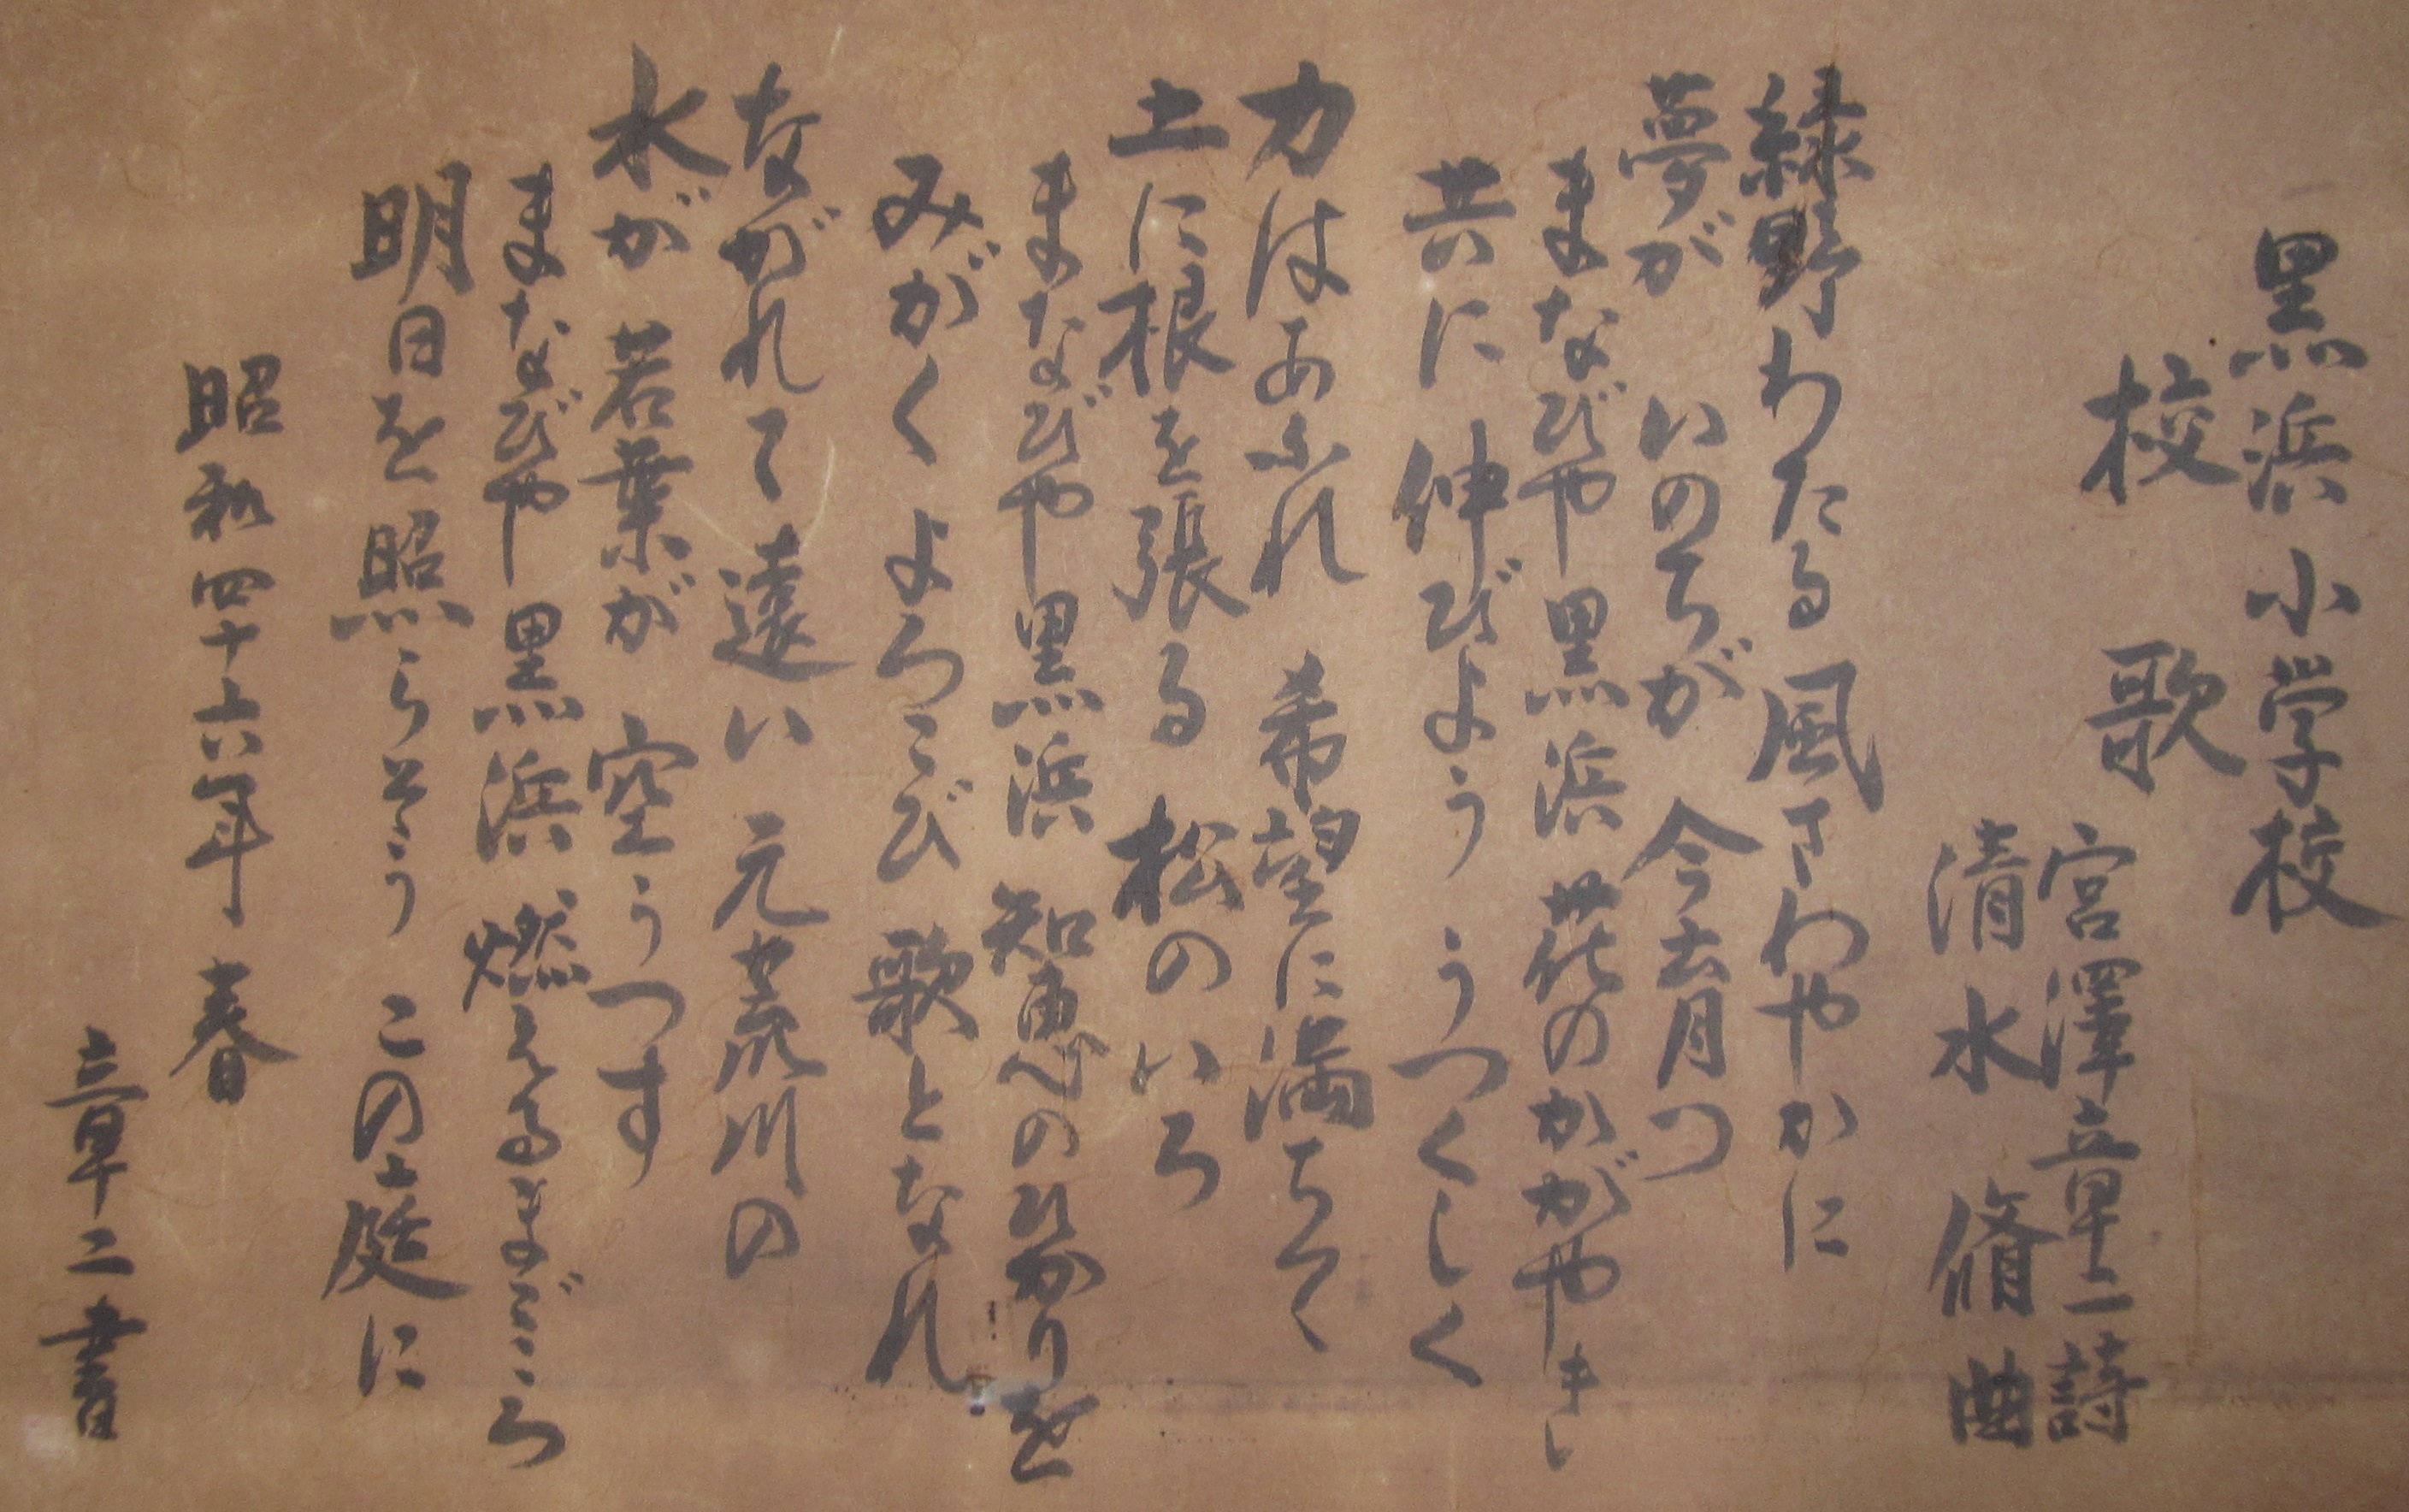 黒浜小学校
校歌
宮澤章二詩
清水脩曲
緑野わたる風さわやかに
夢が いのちが 今育つ
まなびや黒浜 花のかがやき
共に伸びよう うつくしく
力はあふれ 希望に満ちて
土に根を張る 松のいろ
まなびや黒浜 知恵のひかりを
みがくよろこび 歌となれ
ながれて遠い 元荒川の
水が 若葉が 空うつす
まなびや黒浜 燃えるまごころ
明日を照らそう この庭に
昭和四十六年 春
章二書